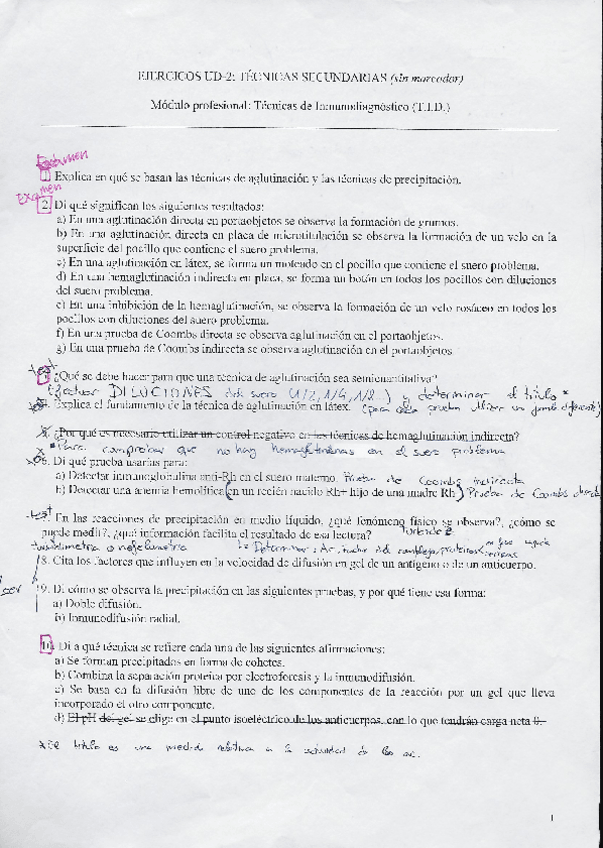 EJERCICOS UD-2: TÉCNICAS SECUNDARIAS (sin marcador)
Módulo profesional: Técnicas de Inmunodiagnóstico (T.I.D.)
Examen
1. Explica en qué se basan las técnicas de aglutinación y las técnicas de precipitación.
Examen
2. Di qué significan los siguientes resultados:
a) En una aglutinación directa en portaobjetos se observa la formación de grumos.
b) En una aglutinación directa en placa de microtitulación se observa la formación de un velo en la
superficie del pocillo que contiene el suero problema.
c) En una aglutinación en látex, se forma un moteado en el pocillo que contiene el suero problema.
d) En una hemaglutinación indirecta en placa, se forma un botón en todos los pocillos con diluciones
del suero problema.
e) En una inhibición de la hemaglutinación, se observa la formación de un velo rosáceo en todos los
pocillos con diluciones del suero problema.
f) En una prueba de Coombs directa se observa aglutinación en el portaobjetos.
g) En una prueba de Coombs indirecta se observa aglutinación en el portaobjetos
test
3. ¿Qué se debe hacer para que una técnica de aglutinación sea semicuantitativa?
Efectuar DILUCIONES del suero (1/2, 1/4, 1/8...) y determinar el título *
4. Explica el fundamento de la técnica de aglutinación en látex. (para cada prueba utilizar un
5. ¿Por qué es necesario utilizar un control negativo en las técnicas de hemaglutinación indirecta?
* Para comprobar que no hay hemaglutininas en el suero problema
6. Di qué prueba usarías para:
a) Detectar inmunoglobulina anti-Rh en el suero materno. Prueba de Coombs indirecta
b) Detectar una anemia hemolítica (en un recién nacido Rh+ hijo de una madre Rh-) Prueba de Coombs directa
test
7. En las reacciones de precipitación en medio líquido, ¿qué fenómeno físico se observa?, ¿cómo se
puede medir?, ¿qué información facilita el resultado de esa lectura? Turbidez
turbidimetria o nefelometria Determinar
8. Cita los factores que influyen en la velocidad de difusión en gel de un antígeno o de un anticuerpo.
9. Di cómo se observa la precipitación en las siguientes pruebas, y por qué tiene esa forma:
a) Doble difusión.
b) Inmunodifusión radial.
10. Di a qué técnica se refiere cada una de las siguientes afirmaciones:
a) Se forman precipitados en forma de cohetes.
b) Combina la separación proteína por electroforesis y la inmunodifusión.
c) Se basa en la difusión libre de uno de los componentes de la reacción por un gel que lleva
incorporado el otro componente.
d) El pH del gel se elige en el punto isoeléctrico de los anticuerpos, con lo que tendrán carga neta 0.
* El título es una medida relativa a la actividad de los ac.
1